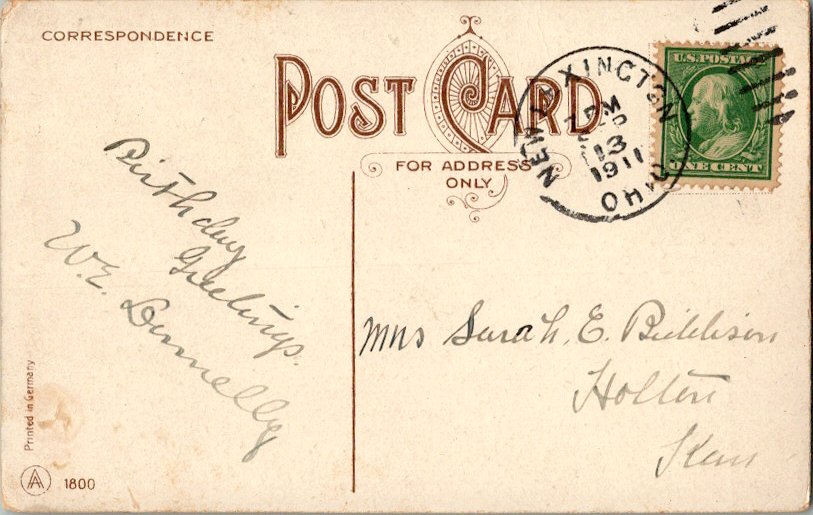 CORRESPONDENCE
POST CARD
FOR ADDRESS
ONLY
NEW LEXINGTON
OHIO
PM
13
1911
U.S. POSTAGE
ONE CENT
Birthday
Greetings.
W.E. Donnelly
Mrs Sarah. E.
Holton
Kan
Printed in Germany
AA 1800